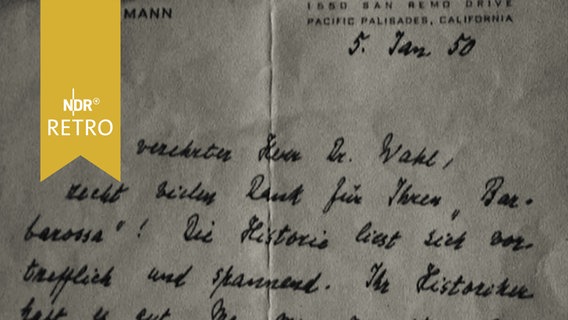 MANN
1550 SAN REMO DRIVE
PACIFIC PALISADES, CALIFORNIA
5. Jan 50
NDR®
RETRO
verehrter Herr Dr. Wahl,
recht vielen Dank für Ihren „Bar-
barossa"! Die Historie liest sich vor-
trefflich und spannend. Ihr Historiker